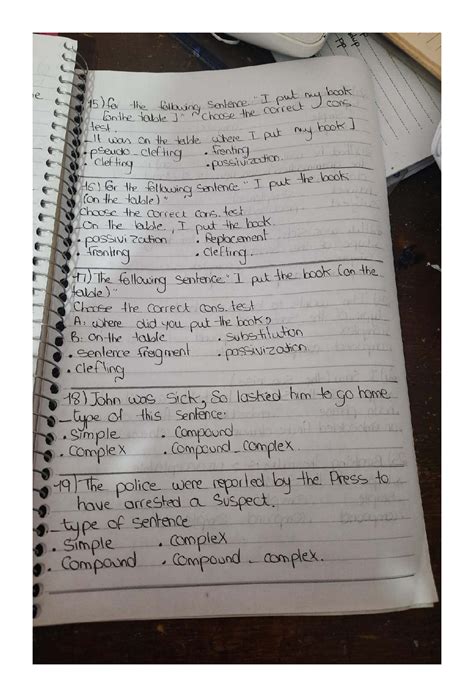 15) for the following sentence "I put my book
[on the table]" ~ choose the correct cons.
test.
_It was on the table where I put my book]
. pseudo_clefting . fronting
. clefting . passivization.
16) for the following sentence "I put the book
(on the table)"
Choose the correct cons. test
On the table, I put the book
. passivization . Replacement
. fronting . Clefting.
17) The following sentence "I put the book (on the
table)"
Choose the correct cons. test
A: where did you put the book?
B: on the table . substitution
. sentence fragment . passivization.
. clefting
18) John was sick, So I asked him to go home
_ type of this sentence
. Simple . Compound
. Complex . Compound_complex.
19) The police were reported by the Press to
have arrested a Suspect.
_ type of sentence
. Simple . complex
. Compound . Compound_complex.